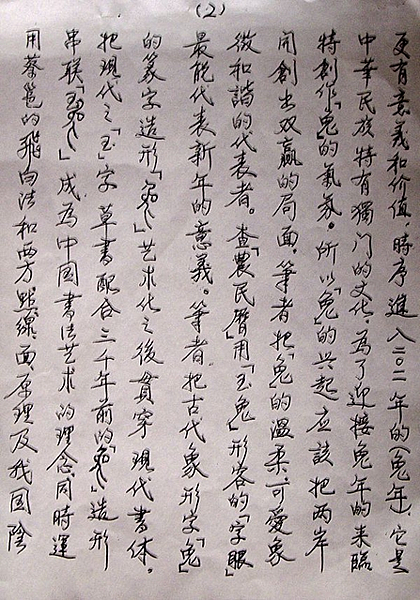 (2)
更有意義和价值，時序進入二〇一一年的「兔年」它是
中華民族特有獨門的文化，為了迎接兔年的来臨
特創作「兔」的氣氛。所以「兔」的兴起应該把两岸
開創出双赢的局面，筆者把「兔」的温柔，可愛象
徵和諧的代表者。查「農民曆」用「玉兔」形容的「字眼」
最能代表新年的意義。筆者把古代象形字「兔」
的篆字造形「」艺术化之後貫穿現代書体。
把現代之「玉」字草書配合三千年前的「」造形
串联「」成為中国書法艺术的理念，同時運
用蔡邕的飛白法和西方點、線、面、原理及我国陰